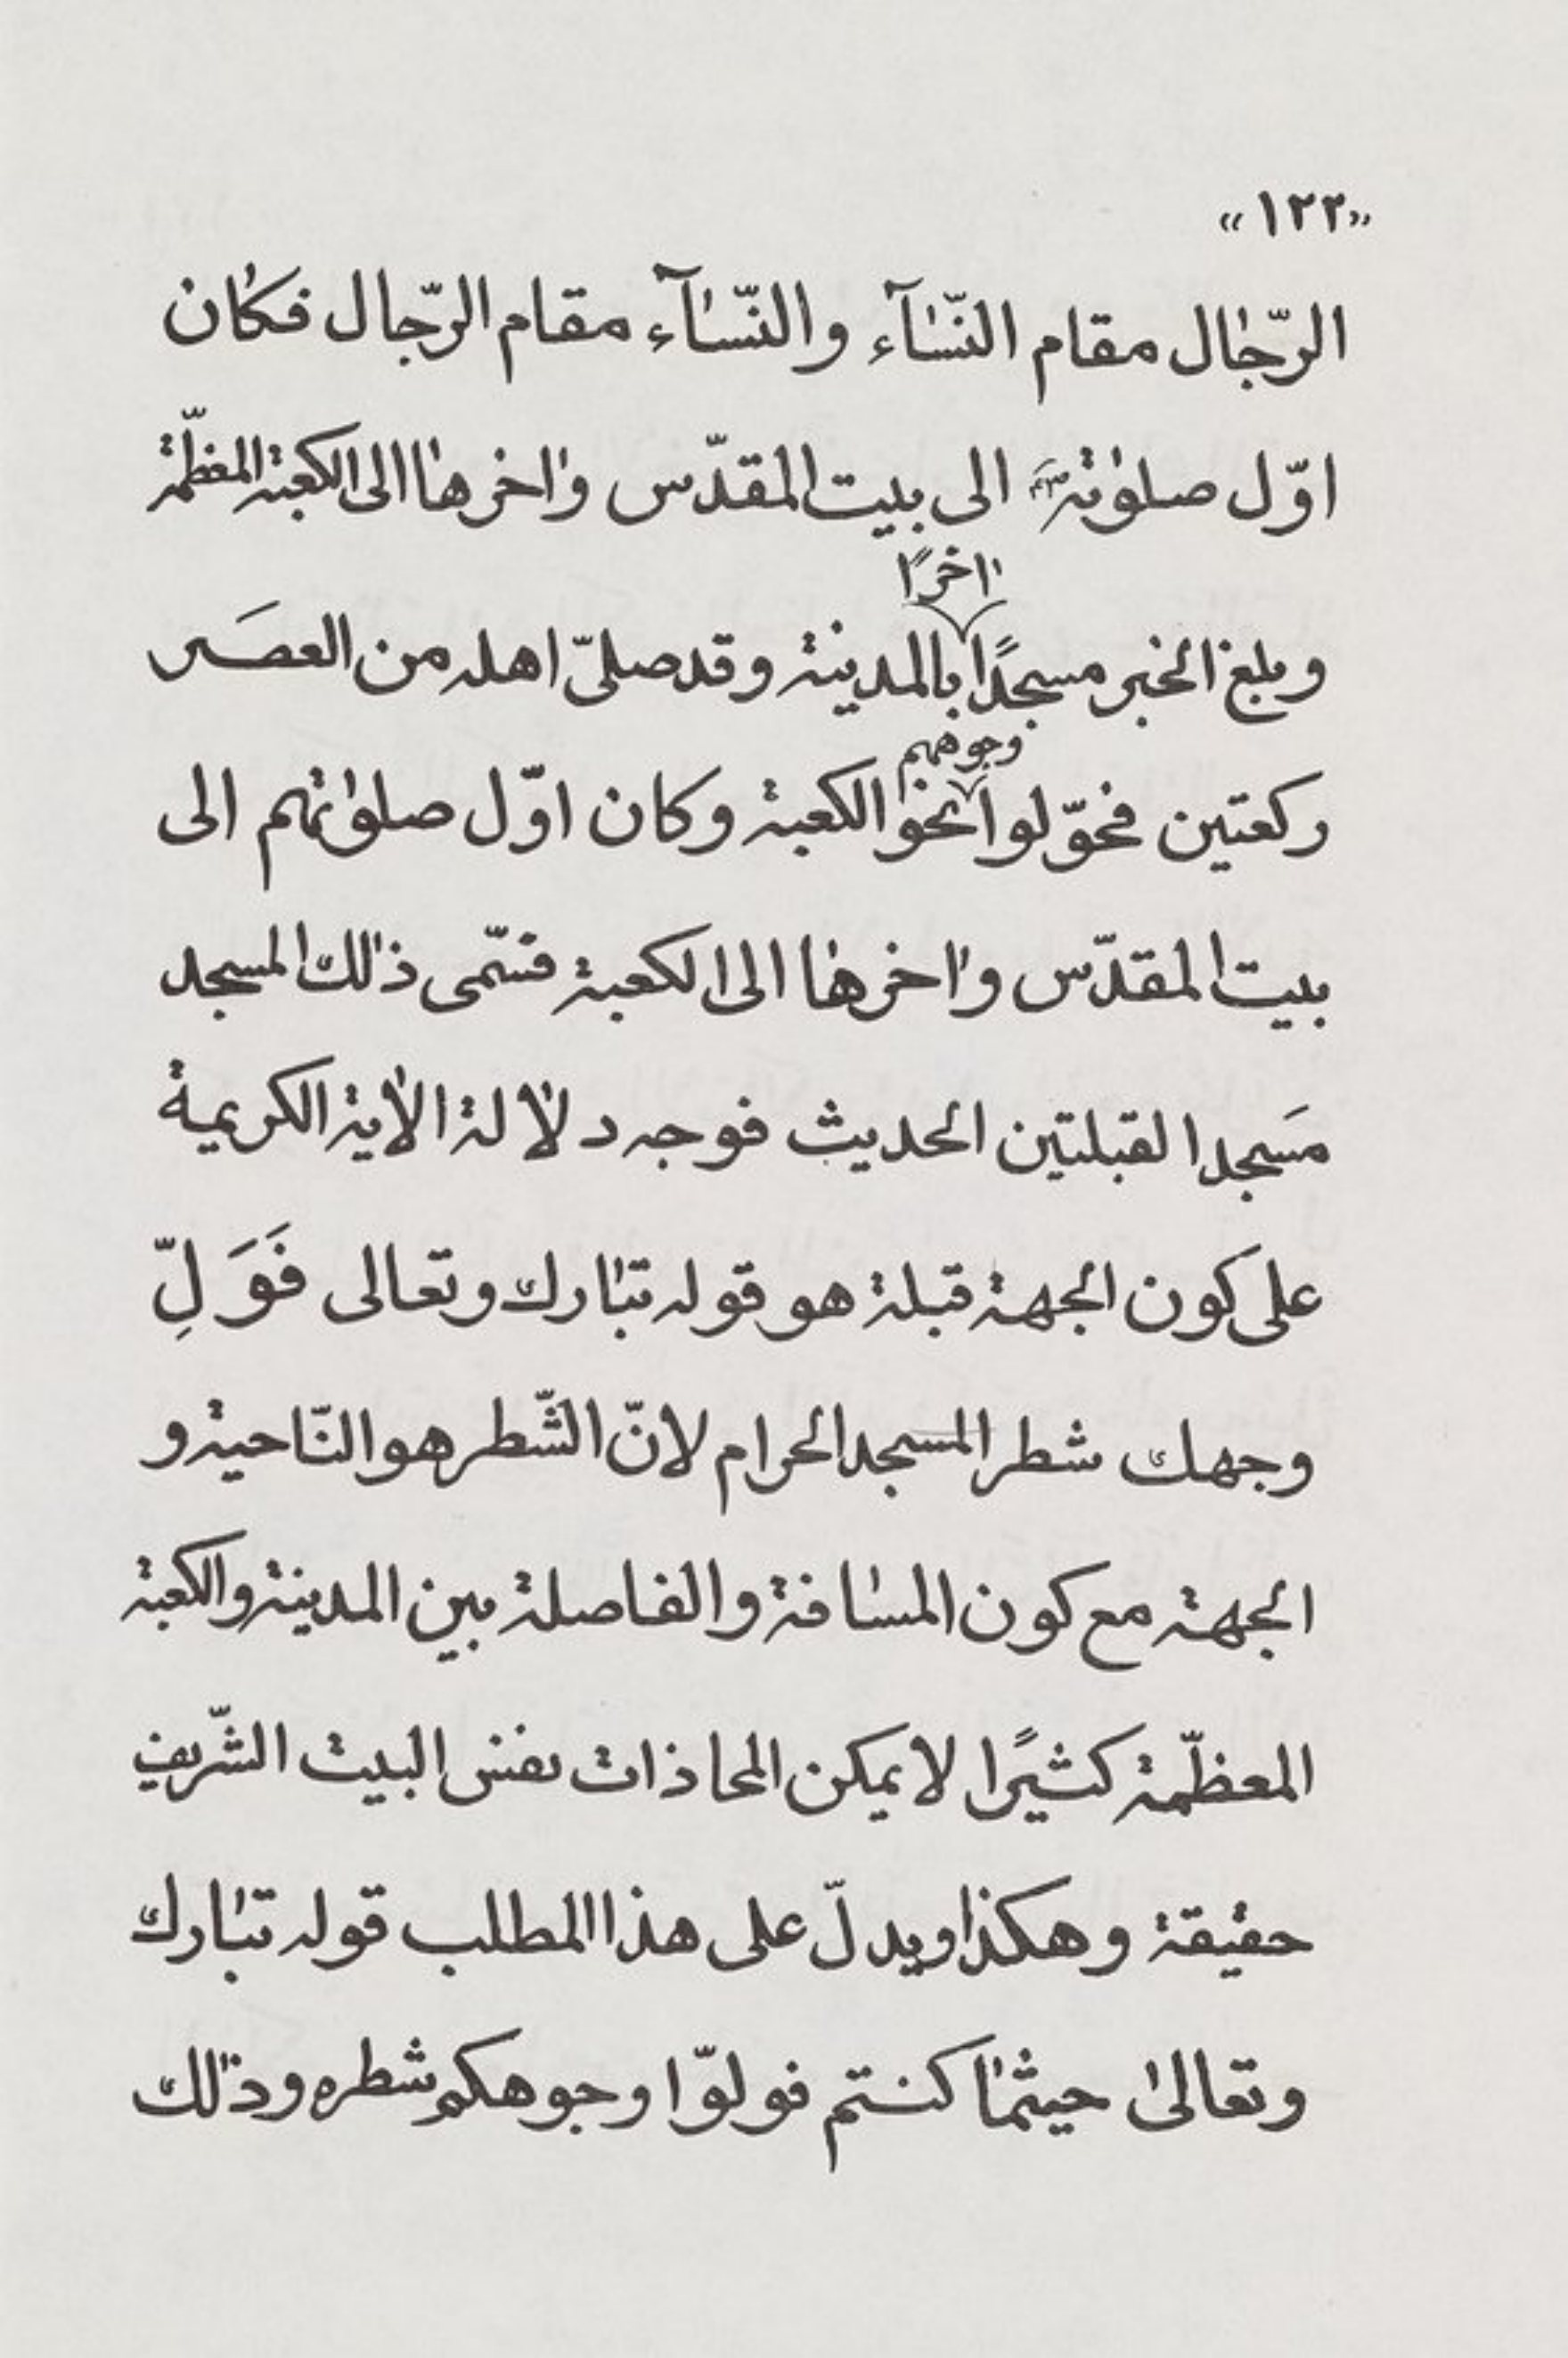 «١٢٢»
الرّجٰال مقام النّسٰآء والنّسٰآء مقام الرّجال فكٰان
اوّل صلوٰته الى بيت المقدّس وٰاخرهٰا الى الكعبة المعظّمة
وبلغ الخبر مسجدًا ٰاخرًا بالمدينة وقد صلىّ اهله من العصَر
ركعتين فحوّلوا وجوههم نحو الكعبة وكان اوّل صلوٰتهم الى
بيت المقدّس وٰاخرهٰا الى الكعبة فسّمى ذٰلك المسجد
مَسجد القبلتين الحديث فوجه دلٰالة الاٰية الكريمة
على كون الجهة قبلة هو قوله تبٰارك وتعالى فَوَلِّ
وجهك شطر المسجد الحرام لانّ الشّطر هو النّاحية و
الجهة مع كون المسٰافة والفاصلة بين المدينة والكعبة
المعظّمة كثيرًا لا يمكن المحاذات بنفس البيت الشّريف
حقيقة وهكذا ويدلّ على هذا المطلب قوله تبٰارك
وتعالىٰ حيثمٰا كنتم فولوّا وجوهكم شطره وذٰلك